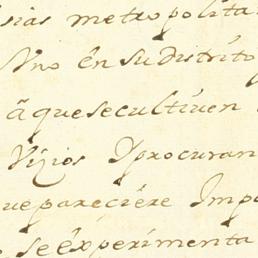 sias metropolita
Uno ên su distrito
â que se cultiven
Vizios Y procuran
que pareciêre Impo
se êxperimenta